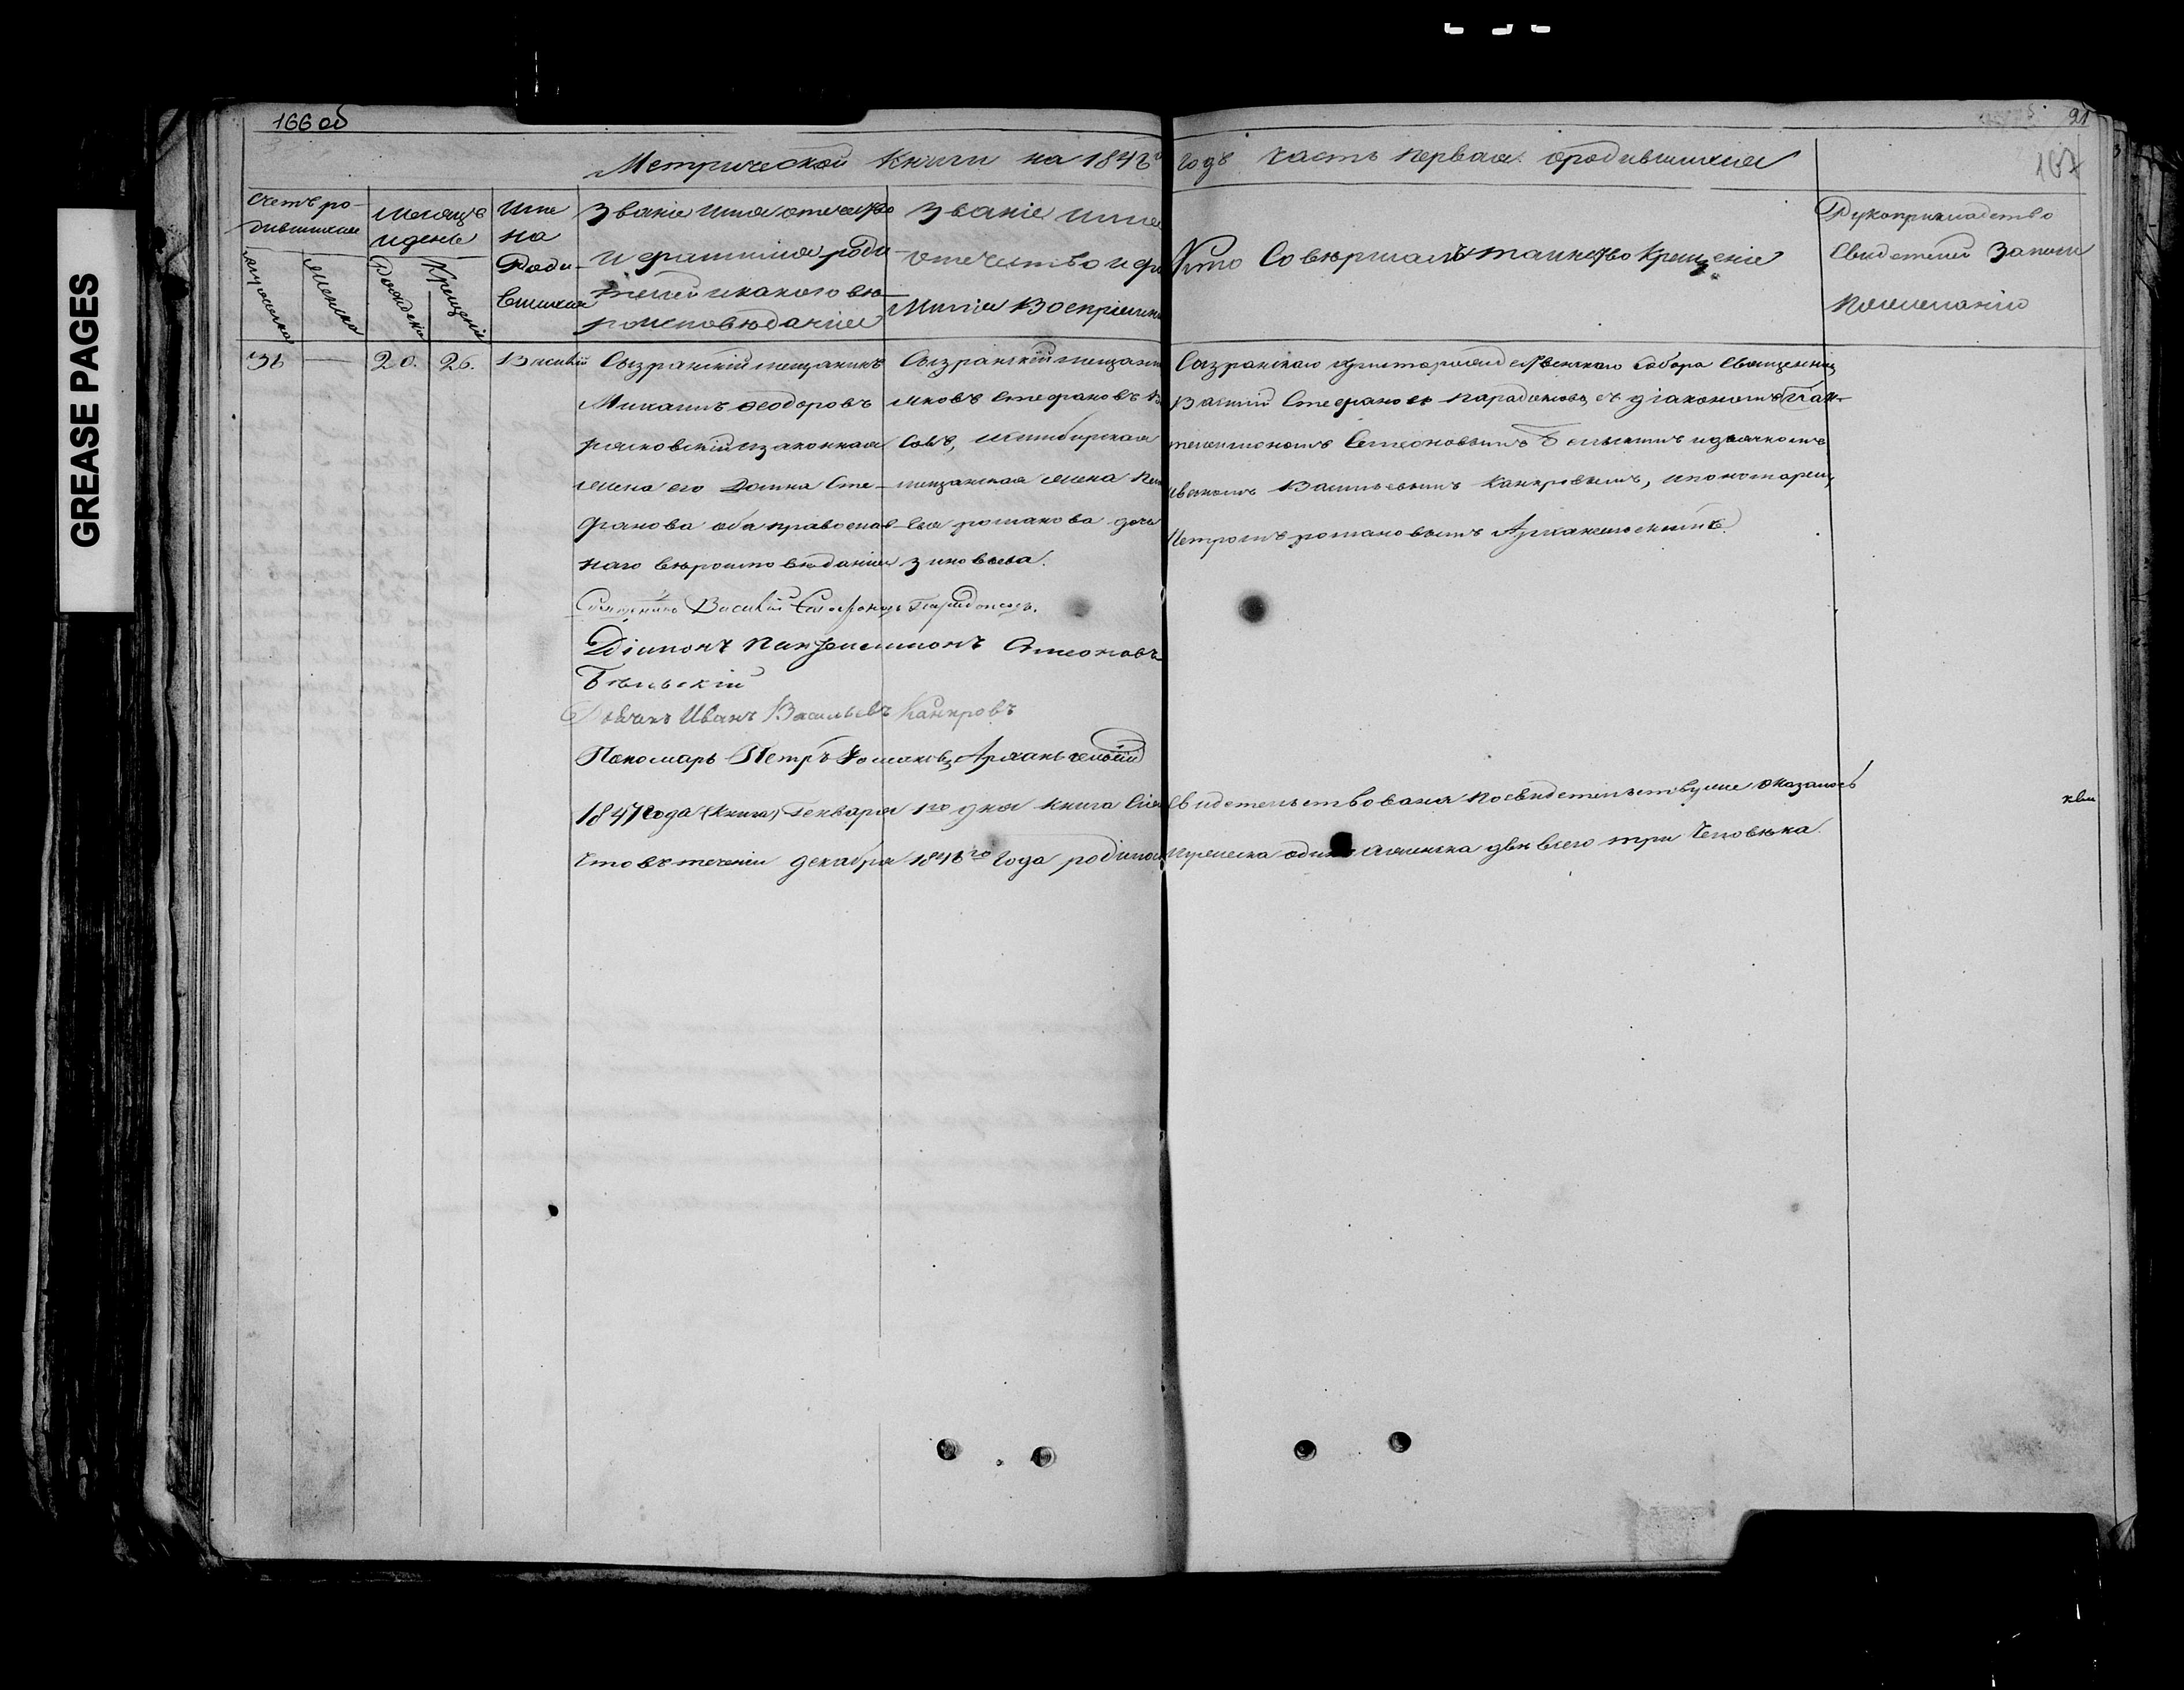 GREASE PAGES
166 об
21
167
Метрической Книги на 1846й годъ часть первая. ородившихся
Счетъ ро-
дившихся
Мужеска
Женска
Месяцъ
и день
Рожденія
Крещенія
Име
на
Роди
вшихся
Званіе имя отечество
и фамилія роди
телей и какого вѣ
роисповѣданія
Званіе имя
отечество и фа
милія Восприемн
Кто Совѣршалъ таинство Крещенія
Рукоприкладство
Свидетелей Записи
По желанію
36 — 20. 26. Василій
Сызранскій мещанинъ
Михаилъ Феодоровъ
законная
жена его Домна Сте-
фанова оба православ-
наго вѣроисповѣданія
Сызранскій мещани
Яковъ Стефановъ
совъ, и симбирская
мещанская жена
романова дочь
зиновьева.
Сызранскаго христорождественскаго Собора Священникъ
Василій Стефановъ Парадоксовъ съ діакономъ Пан-
телеимономъ Симеоновымъ Бельскимъ и дьячкомъ
Иваномъ Васильевымъ Канкровымъ, и пономаремъ
Петромъ романовымъ Архангельскимъ
Священникъ Василій Стефановъ Парадоксовъ.
Діаконъ Пантелеимонъ Симеоновъ
Бѣльскій
Дьячекъ Иванъ Васильевъ Канкровъ
Пономарь Петръ Романовъ Архангельскій
1847 года (Книга) Генваря 1го дня книга сія свидетельствована по свидетельству же оказалось
Что въ теченіи декабря 1846го Года родилось мужеска одинъ а женска двѣ всего три Человѣка.